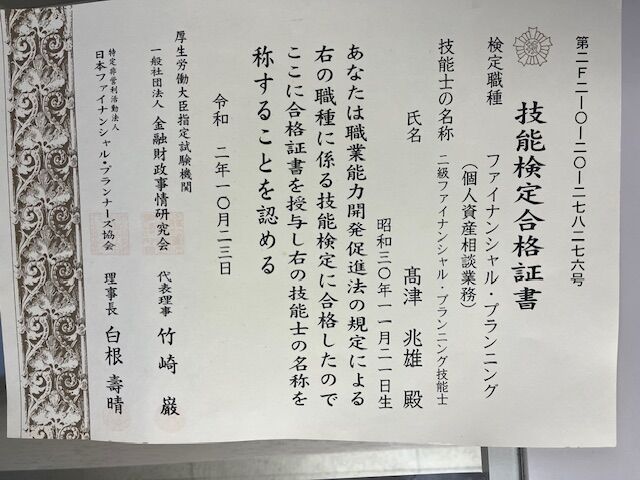 第二F二一〇一二〇一二七八二七六号
技能検定合格証書
検定職種 ファイナンシャル・プランニング
（個人資産相談業務）
技能士の名称 二級ファイナンシャル・プランニング技能士
氏名 髙津 兆雄 殿
昭和三〇年一一月二一日生
あなたは職業能力開発促進法の規定による
右の職種に係る技能検定に合格したので
ここに合格証書を授与し右の技能士の名称を
称することを認める
令和 二年一〇月二三日
厚生労働大臣指定試験機関
一般社団法人 金融財政事情研究会 代表理事 竹崎 巌
特定非営利活動法人
日本ファイナンシャル・プランナーズ協会 理事長 白根 壽晴